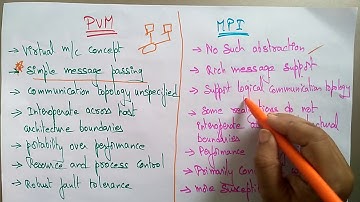 PVM
→ Virtual m/c concept
→ Simple message passing
→ Communication topology unspecified
→ Interoperate across host
architecture boundaries
→ portability over performance
→ Resource and process control
→ Robust fault tolerance
MPI
→ No Such abstraction
→ Rich message support
→ Support logical Communication topology
→ Some do not
interoperate
boundaries
→ Performance
→ Primarily
→ more Suscepti